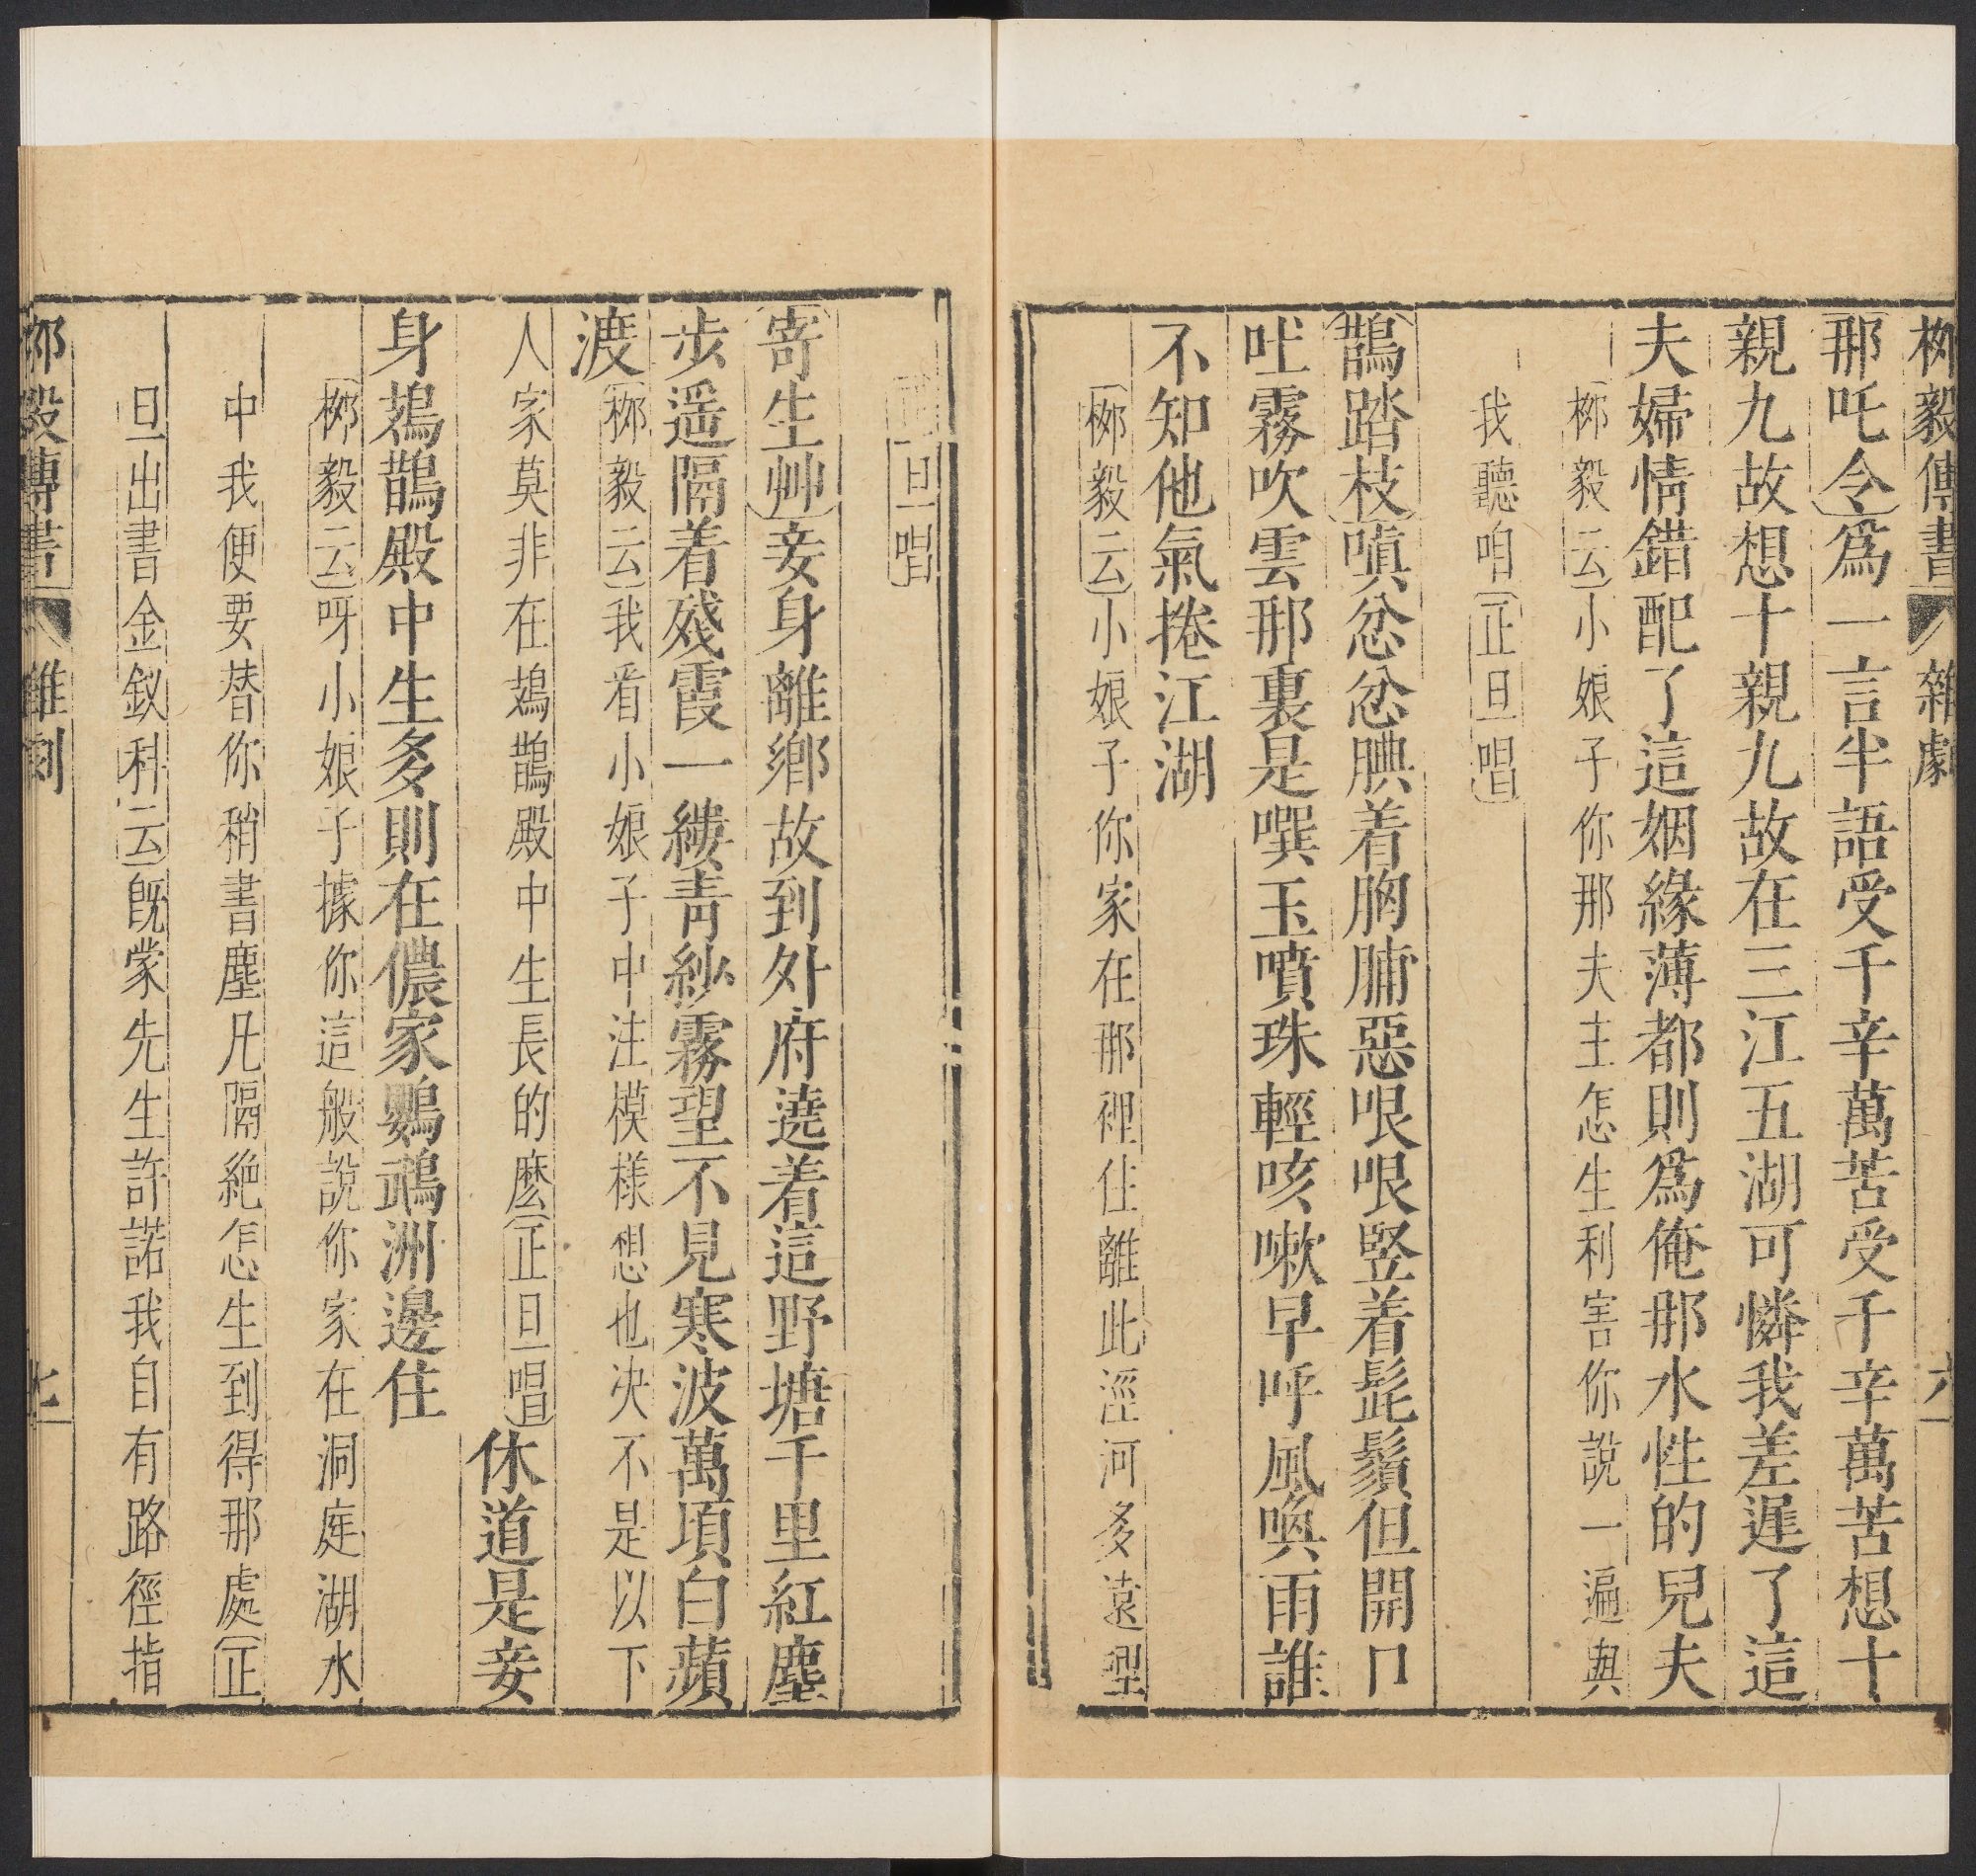 柳毅傳書 雜劇 六
那吒令爲一言半語受千辛萬苦受千辛萬苦想十
親九故想十親九故在三江五湖可憐我差遲了這
夫婦情錯配了這姻緣薄都則爲俺那水性的兒夫
柳毅云小娘子你那夫主怎生利害你說一遍與
我聽咱正旦唱
鵲踏枝嗔忿忿腆着胸脯惡哏哏竪着髭鬚但開口
吐霧吹雲那裏是噀玉噴珠輕咳嗽早呼風喚雨誰
不知他氣捲江湖
柳毅云小娘子你家在那裡住離此涇河多遠哩
正旦唱
寄生艸妾身離鄉故到外府遶着這野塘千里紅塵
步遥隔着殘霞一縷靑紗霧望不見寒波萬頃白蘋
渡柳毅云我看小娘子中注模樣想也决不是以下
人家莫非在鳷鵲殿中生長的麽正旦唱休道是妾
身鳷鵲殿中生多則在儂家鸚鵡洲邊住
柳毅云呀小娘子據你這般說你家在洞庭湖水
中我便要替你稍書塵凡隔絶怎生到得那處正
旦出書金釵科云旣蒙先生許諾我自有路徑指
柳毅傳書 雜劇 七